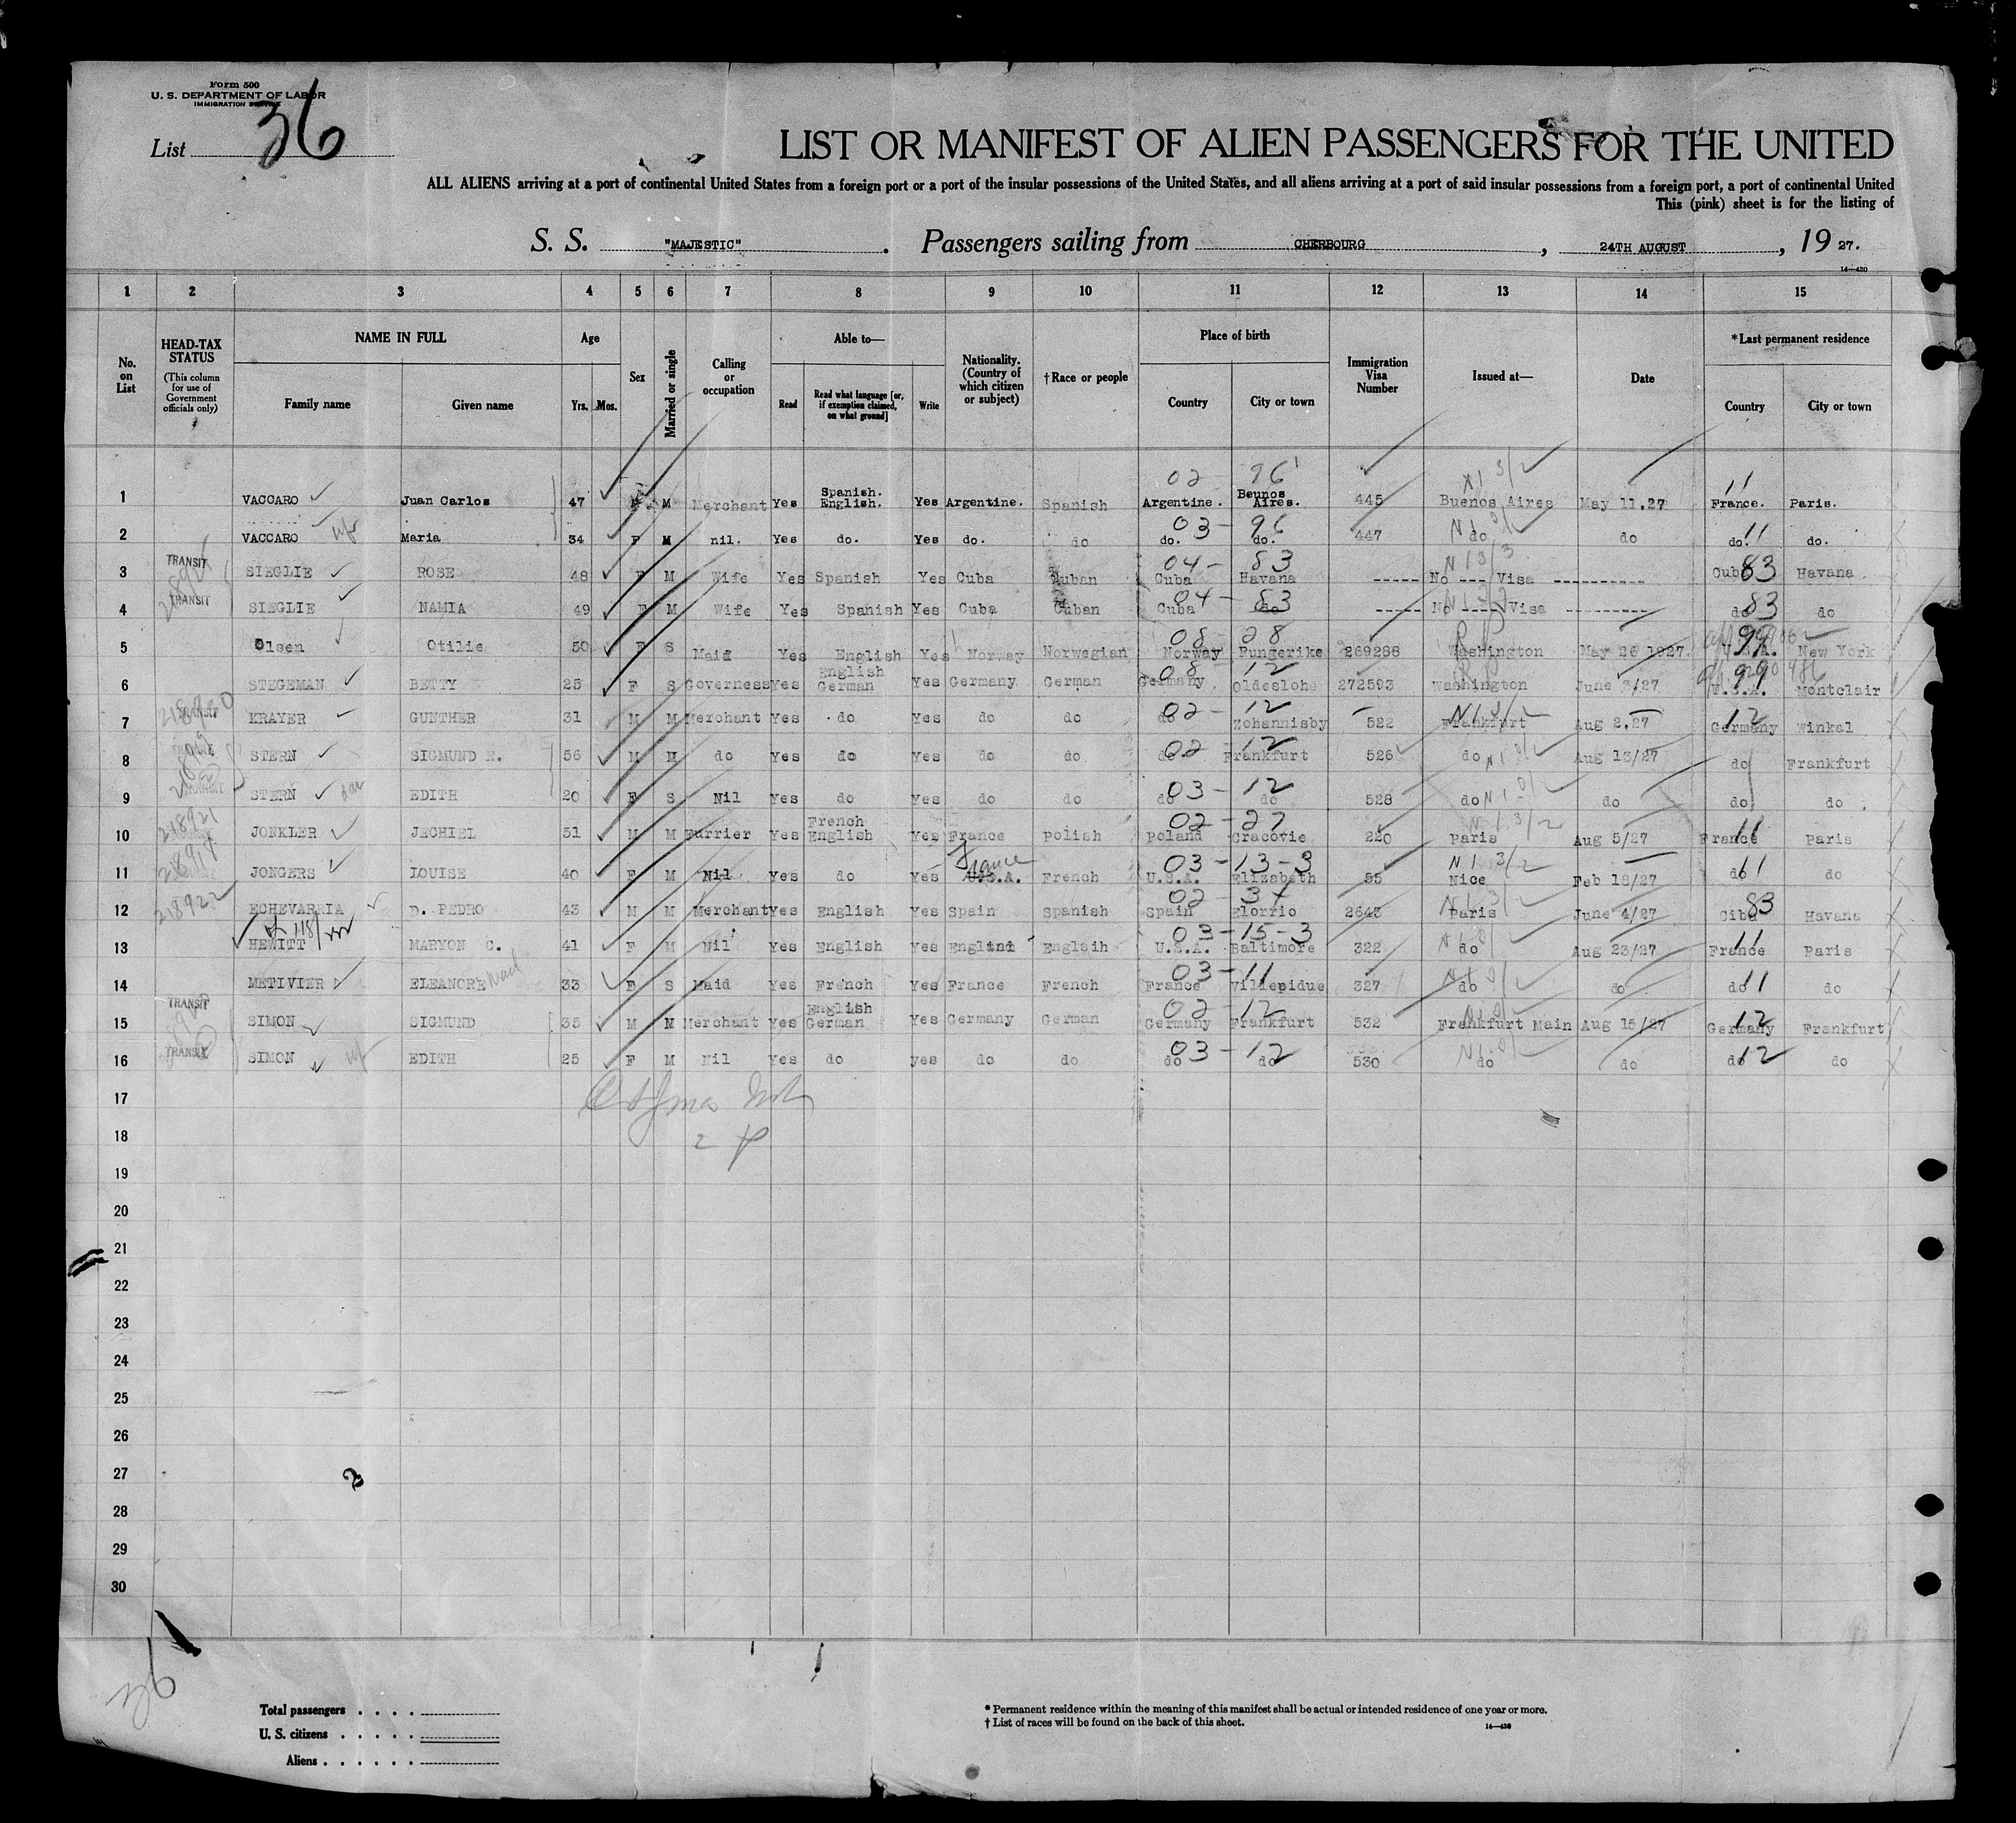 Form 500
U. S. DEPARTMENT OF LABOR
IMMIGRATION SERVICE
List 36
LIST OR MANIFEST OF ALIEN PASSENGERS FOR THE UNITED
ALL ALIENS arriving at a port of continental United States from a foreign port or a port of the insular possessions of the United States, and all aliens arriving at a port of said insular possessions from a foreign port, a port of continental United
This (pink) sheet is for the listing of
S. S. "MAJESTIC" . Passengers sailing from CHERBOURG , 24TH AUGUST , 19 27.
14—430
1 2 3 4 5 6 7 8 9 10 11 12 13 14 15
No. on List
HEAD-TAX STATUS (This column for use of Government officials only)
NAME IN FULL Family name Given name
Age Yrs. Mos.
Sex
Married or single
Calling or occupation
Able to— Read Read what language [or, if exemption claimed, on what ground] Write
Nationality. (Country of which citizen or subject)
†Race or people
Place of birth Country City or town
Immigration Visa Number
Issued at—
Date
*Last permanent residence Country City or town
02 96 11
1 VACCARO Juan Carlos 47 M M Merchant Yes Spanish. English. Yes Argentine. Spanish Argentine. Beunos Aires. 445 Buenos Aires May 11.27 France. Paris.
03 - 96 11
2 VACCARO wife Maria 34 F M nil. Yes do. Yes do. do do. do. 447 do do do. do.
04 - 83 83
3 TRANSIT SIEGLIE ROSE 48 F M Wife Yes Spanish Yes Cuba Cuban Cuba Havana ----- No --- Visa ---------- Cuba Havana
04 - 83 83
4 TRANSIT SIEGLIE NAMIA 49 F M Wife Yes Spanish Yes Cuba Cuban Cuba do ----- No ---- Visa ---------- do do
08 - 28 99
5 Olsen Otilie 50 F S Maid Yes English Yes Norway Norwegian Norway Rungerike 269288 Washington May 26 1927. U.S.A. New York
08 - 12 99
6 STEGEMAN BETTY 25 F S Governess Yes English German Yes Germany German Germany Oldeslohe 272593 Washington June 3/27 U.S.A. Montclair
02 - 12 12
7 218920 TRANSIT KRAYER GUNTHER 31 M M Merchant Yes do Yes do do do Zohannisby 522 Frankfurt Aug 2.27 Germany Winkal
02 - 12
8 STERN SIGMUND E. 56 M M do Yes do Yes do do do Frankfurt 526 do Aug 13/27 do Frankfurt
03 - 12
9 STERN dau EDITH 20 F S Nil Yes do Yes do do do do 528 do do do do
02 - 27 11
10 218921 JONKLER JECHIEL 51 M M Furrier Yes French English Yes France Polish Poland Cracovie 220 Paris Aug 5/27 France Paris
03 - 13 - 3 11
11 JONGERS LOUISE 40 F M Nil Yes do Yes U.S.A. France French U.S.A. Elizabeth 55 Nice Feb 18/27 do do
02 - 34 83
12 218922 ECHEVARRIA D. PEDRO 43 M M Merchant Yes English Yes Spain Spanish Spain Elorrio 2643 Paris June 4/27 Ciba Havana
03 - 15 - 3 11
13 HEWITT MARYON C. 41 F M Nil Yes English Yes England Englsih U.S.A. Baltimore 322 do Aug 23/27 France Paris
03 - 11 11
14 METIVIER ELEANORE maid 33 F S Maid Yes French Yes France French France Villepidue 327 do do do do
02 - 12 12
15 TRANSIT SIMON SIGMUND 35 M M Merchant Yes English German Yes Germany German Germany Frankfurt 532 Frankfurt Main Aug 15/27 Germany Frankfurt
03 - 12 12
16 TRANSIT SIMON wf EDITH 25 F M Nil Yes do yes do do do do 530 do do do do
17
18
19
20
21
22
23
24
25
26
27
28
29
30
36
Total passengers . . . .
U. S. citizens . . . . .
Aliens . . . . . .
* Permanent residence within the meaning of this manifest shall be actual or intended residence of one year or more.
† List of races will be found on the back of this sheet.
14—430